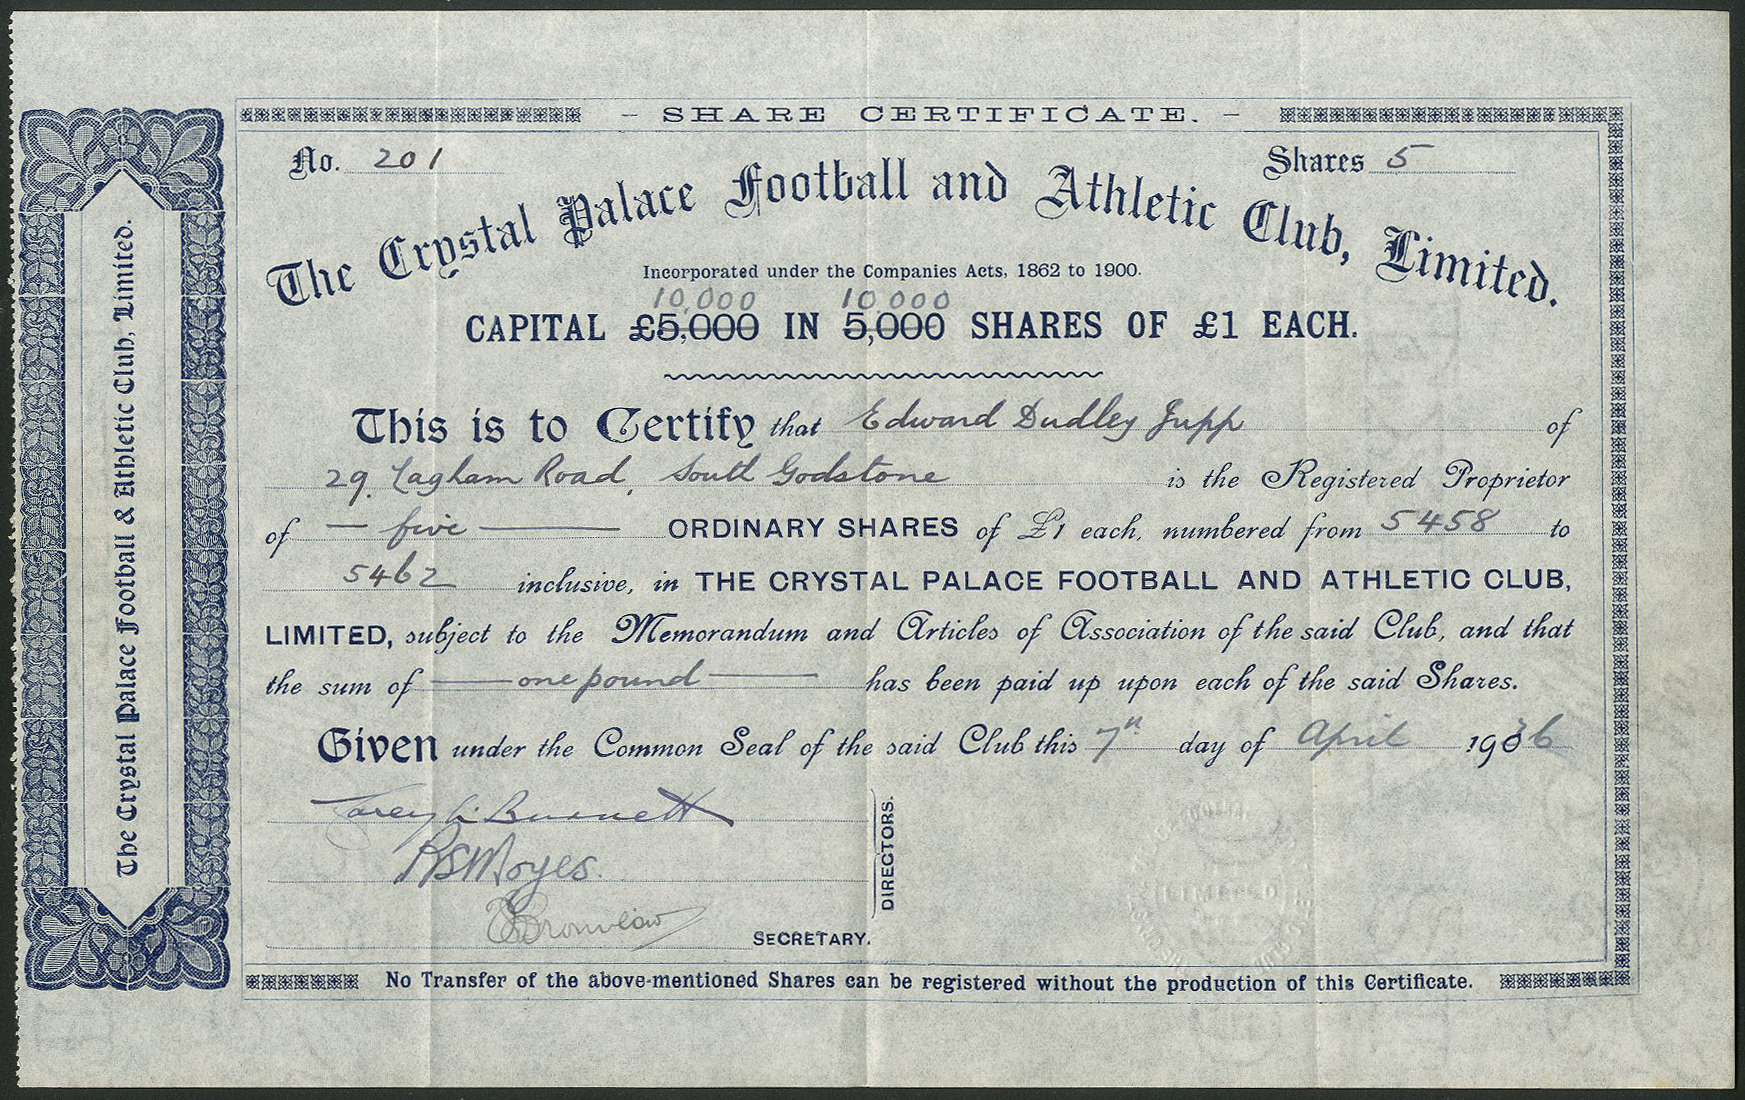 - SHARE CERTIFICATE. -
No. 201
Shares 5
The Crystal Palace Football and Athletic Club, Limited.
Incorporated under the Companies Acts, 1862 to 1900.
10,000 10,000
CAPITAL £5,000 IN 5,000 SHARES OF £1 EACH.
This is to Certify that Edward Dudley Jupp of
29. Lagham Road, South Godstone is the Registered Proprietor
of — five — ORDINARY SHARES of £1 each, numbered from 5458 to
5462 inclusive, in THE CRYSTAL PALACE FOOTBALL AND ATHLETIC CLUB,
LIMITED, subject to the Memorandum and Articles of Association of the said Club, and that
the sum of — one pound — has been paid up upon each of the said Shares.
Given under the Common Seal of the said Club this 7th day of April 1936
Burnett
RSMoyes.
DIRECTORS.
Bromilow
SECRETARY.
No Transfer of the above-mentioned Shares can be registered without the production of this Certificate.
The Crystal Palace Football & Athletic Club, Limited.
LIMITED